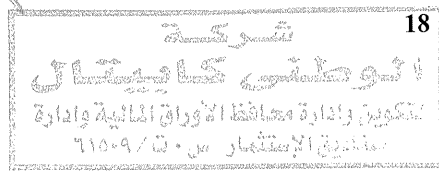 18
شركة
الوطني كابيتال
لتكوين وإدارة محافظ الأوراق المالية وإدارة
صناديق الإستثمار س.ت/٦١٥٠٩